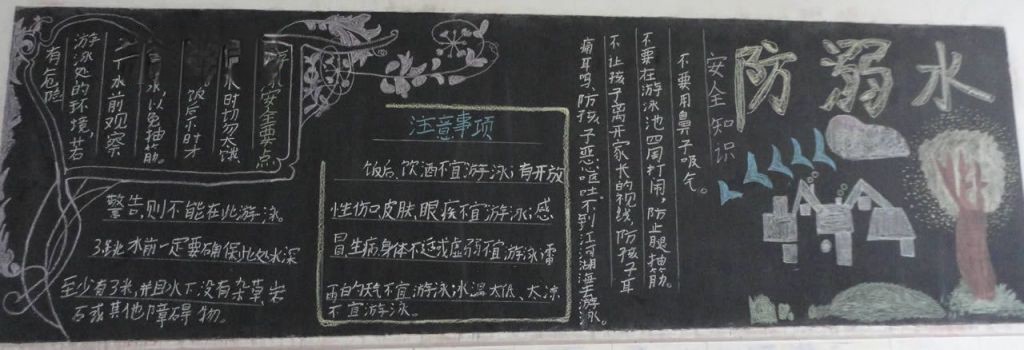 防溺水
安全知识
不要用鼻子吸气。
不要在游泳池四周打闹,防止腿抽筋。
不让孩子离开家长的视线,防孩子耳
痛耳鸣,防孩子恶心呕吐不到江河湖海去游泳。
注意事项
饭后、饮酒不宜游泳;有开放
性伤口皮肤、眼疾不宜游泳;感
冒生病身体不适或虚弱不宜游泳雷
雨的天气不宜游泳水温太低、太凉
不宜游泳。
安全要点
水时切勿太饿
饭后不时才
水以免抽筋。
水前观察
游泳处的环境,若
有危险
警告,则不能在此游泳。
3跳水前一定要确保此处水深
至少有3米,并且水下没有杂草岩
石或其他障碍物。